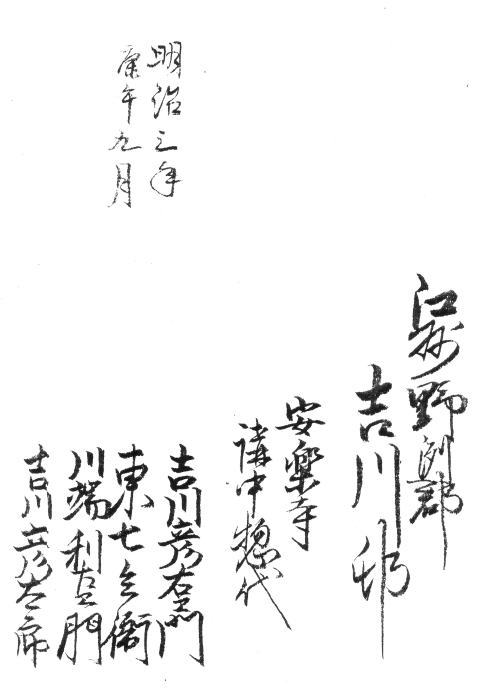 江州野洲郡
吉川邨
安樂寺
講中惣代
吉川彦右衛門
東七兵衛
川端利左衛門
吉川彦太郎
明治三年
庚午九月